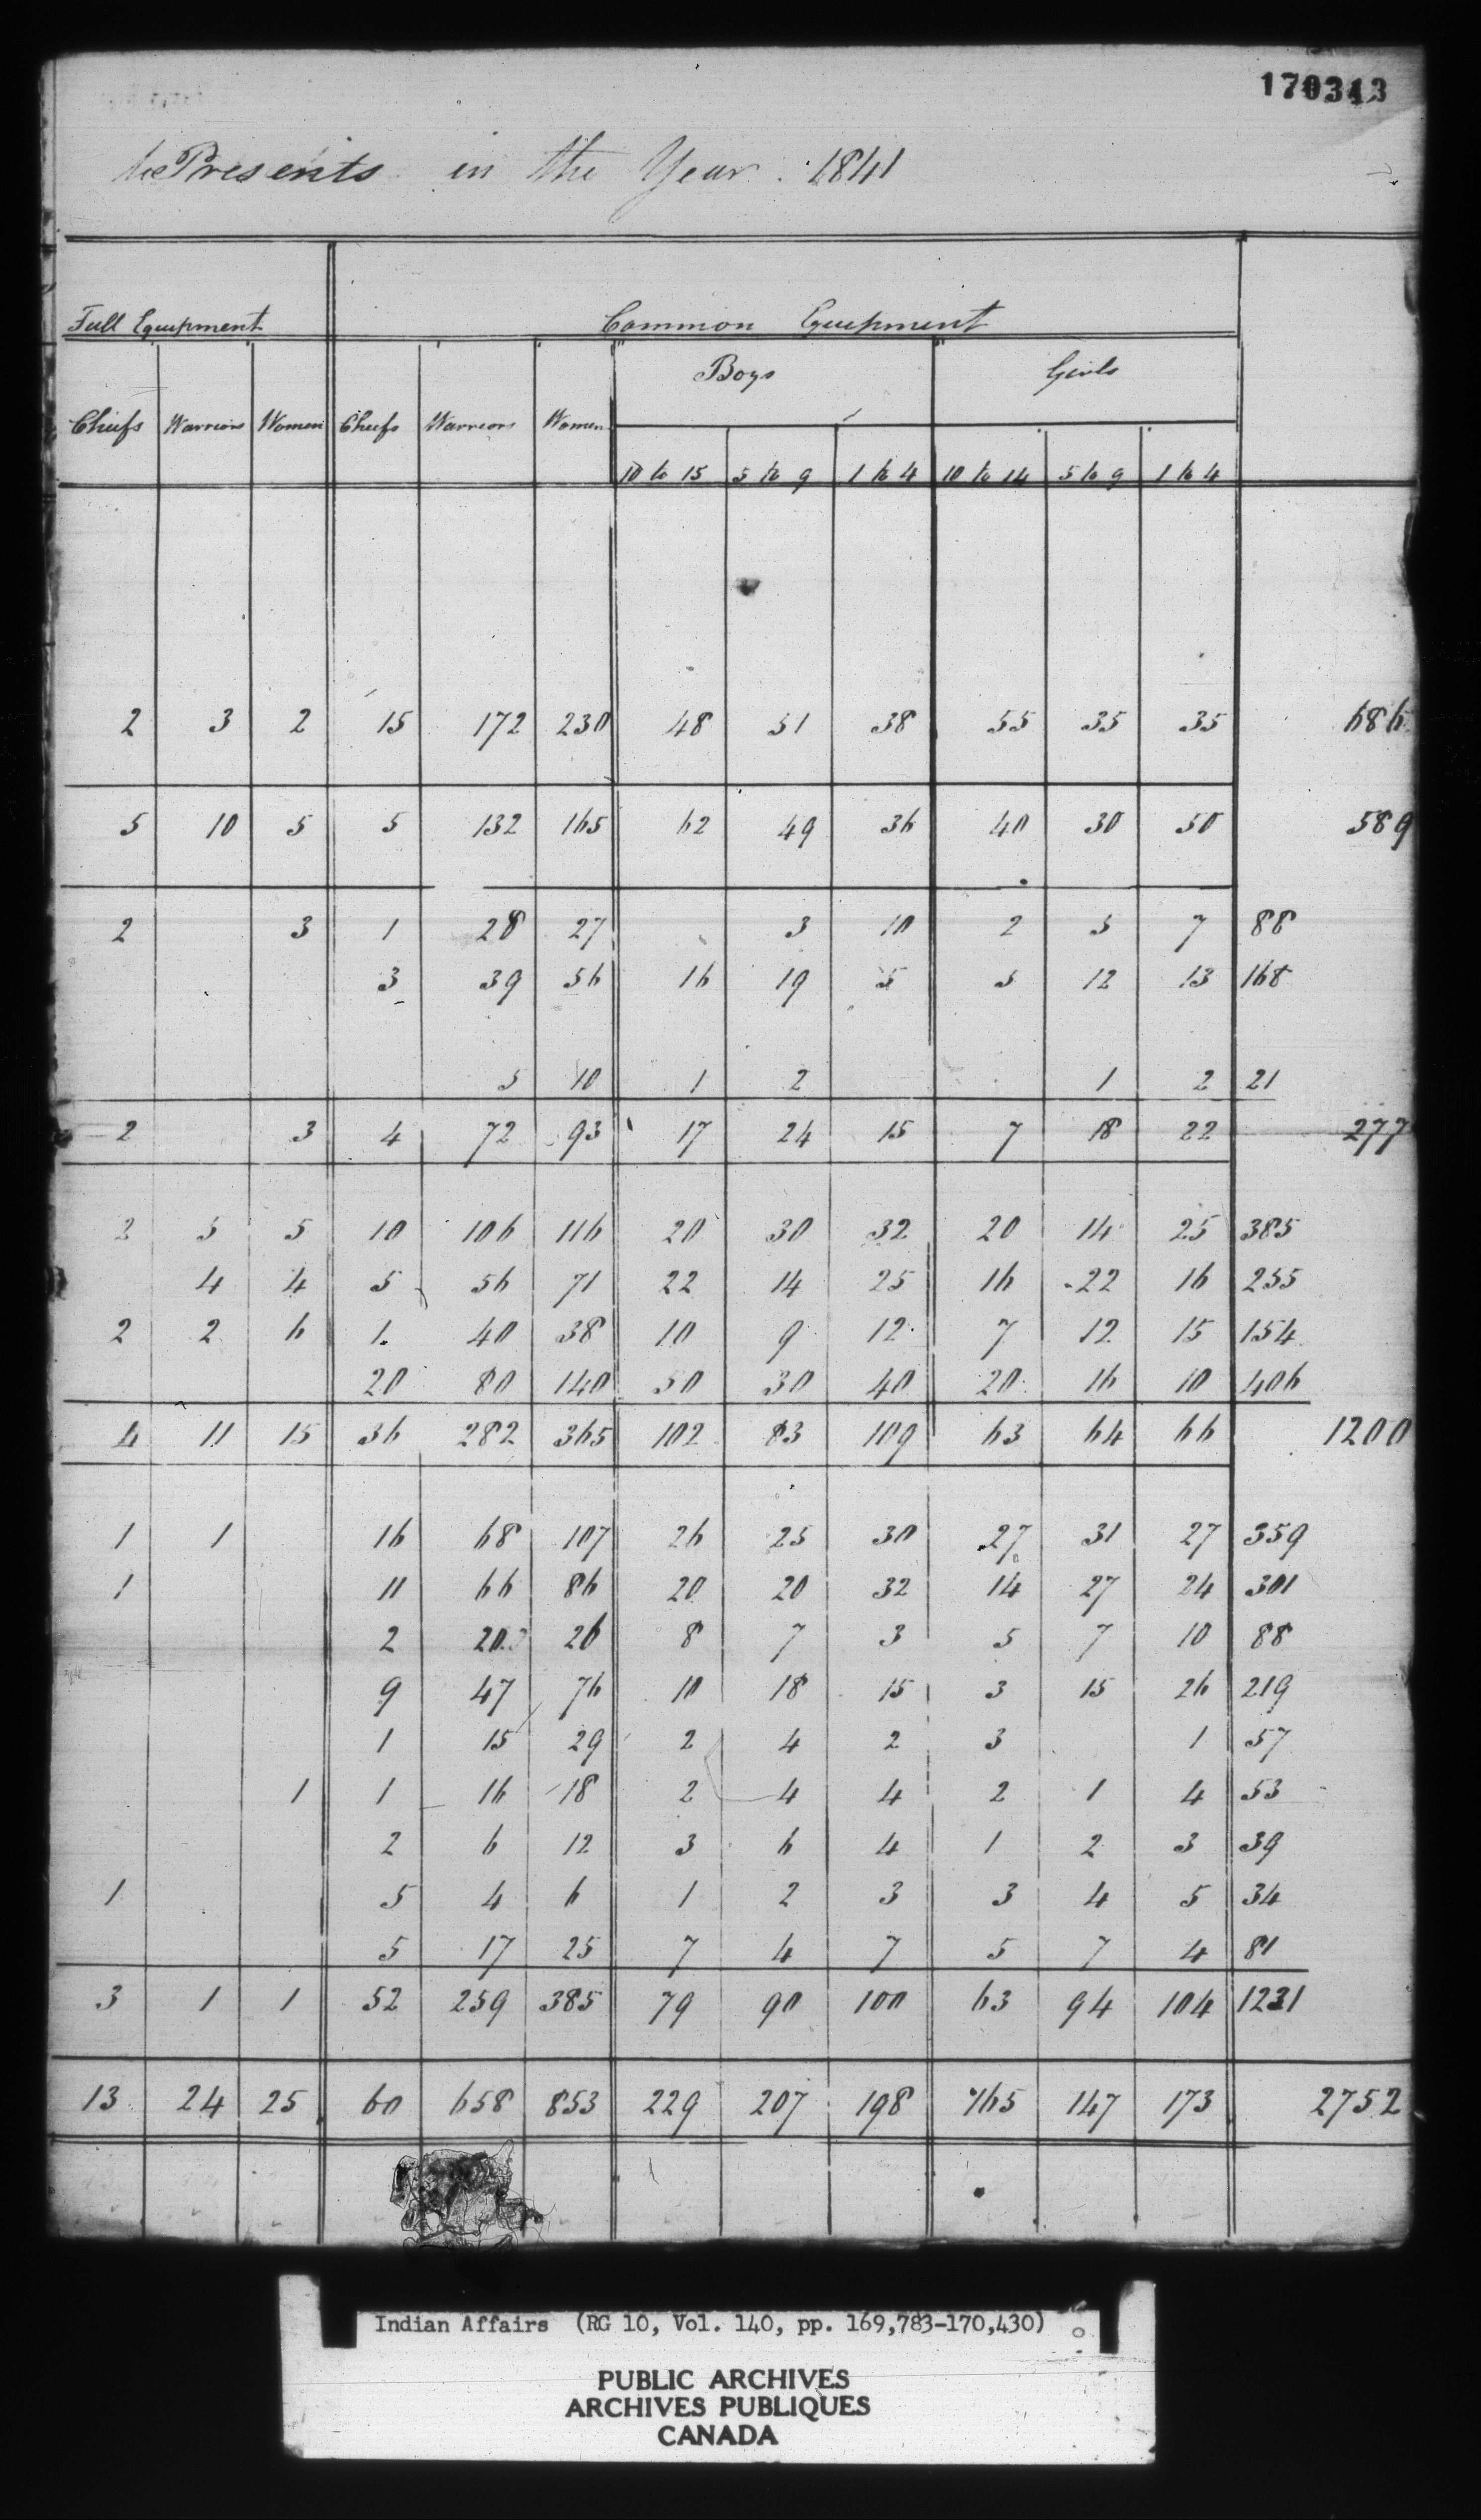 170343
Presents in the Year 1841
Full Equipment Common Equipment
Boys Girls
Chiefs Warriors Women Chiefs Warriors Women
10 to 15 5 to 9 1 to 4 10 to 14 5 to 9 1 to 4
2 3 2 15 172 230 48 51 38 55 35 35 686
5 10 5 5 132 165 62 49 36 40 30 50 589
2 3 1 28 27 3 10 2 5 7 88
3 39 56 16 19 5 5 12 13 168
5 10 1 2 1 2 21
2 3 4 72 93 17 24 15 7 18 22 277
2 5 5 10 106 116 20 30 32 20 14 25 385
4 4 5 56 71 22 14 25 16 22 16 255
2 2 6 1 40 38 10 9 12 7 12 15 154
20 80 140 50 30 40 20 16 10 406
4 11 15 36 282 365 102 83 109 63 64 66 1200
1 1 16 68 107 26 25 30 27 31 27 359
1 11 66 86 20 20 32 14 27 24 301
2 20 26 8 7 3 5 7 10 88
9 47 76 10 18 15 3 15 26 219
1 15 29 2 4 2 3 1 57
1 1 16 18 2 4 4 2 1 4 53
2 6 12 3 6 4 1 2 3 39
1 5 4 6 1 2 3 3 4 5 34
5 17 25 7 4 7 5 7 4 81
3 1 1 52 259 385 79 90 100 63 94 104 1231
13 24 25 60 658 853 229 207 198 165 147 173 2752
Indian Affairs (RG 10, Vol. 140, pp. 169,783-170,430)
PUBLIC ARCHIVES
ARCHIVES PUBLIQUES
CANADA